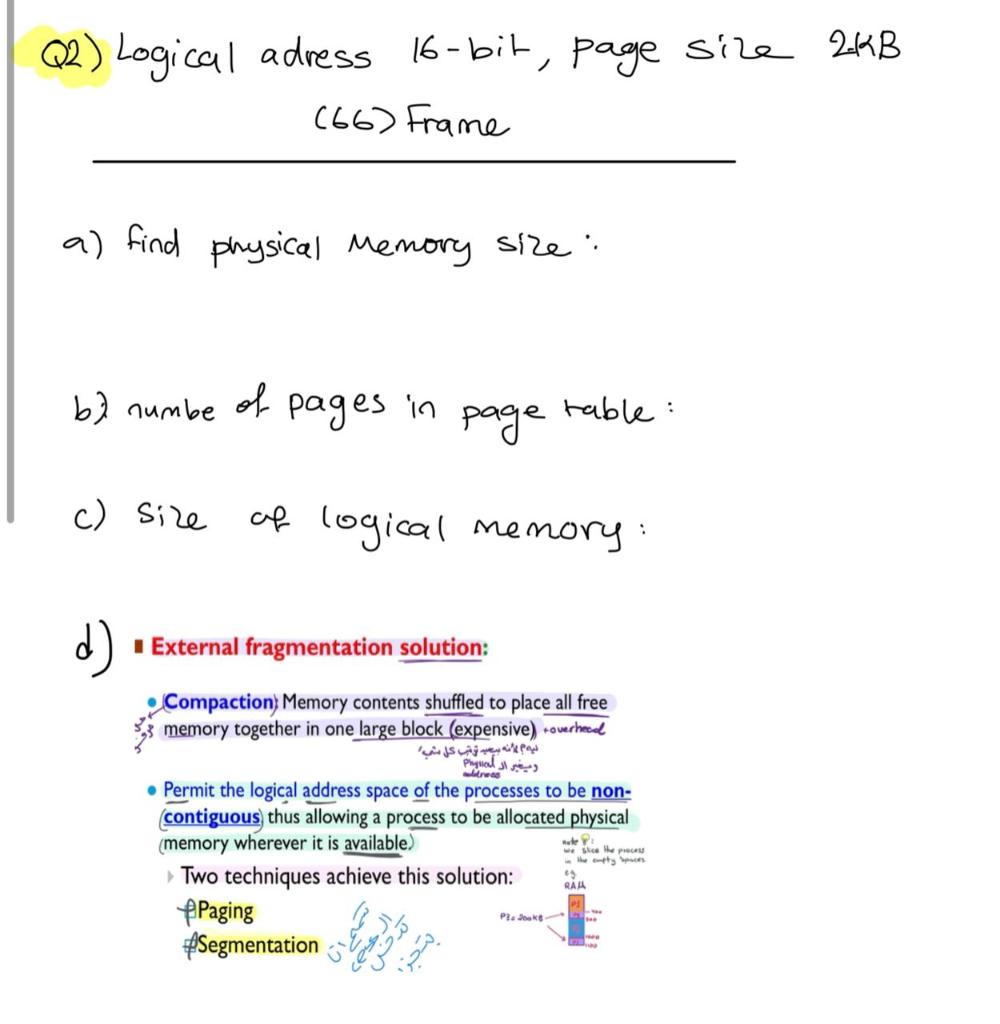 Q2) Logical adress 16-bit, page size 2KB
(66) Frame
a) find physical Memory size :
b) numbe of pages in page table :
c) size of logical memory :
d) External fragmentation solution:
Compaction: Memory contents shuffled to place all free
memory together in one large block (expensive) +overhead
Physical
address
Permit the logical address space of the processes to be non-
contiguous) thus allowing a process to be allocated physical
(memory wherever it is available)
note :
we slice the process
in the empty spaces
eg
RAM
Two techniques achieve this solution:
Paging
P3= 200KB
Segmentation